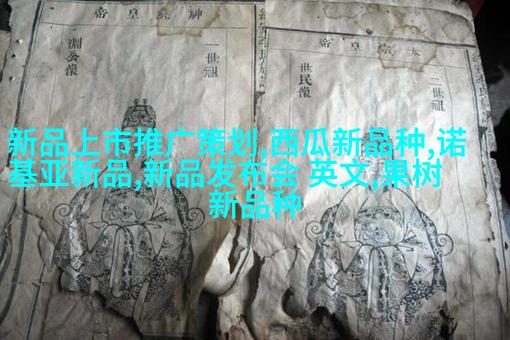 太宗皇帝
二世祖
世民像
神堯皇帝
一世祖
淵公像
新品上市推广策划,西瓜新品种,诺
基亚新品,新品发布会 英文,果树
新品种